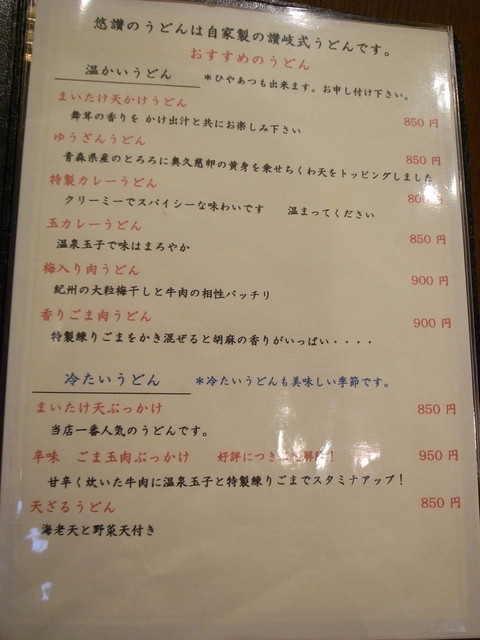 悠讃のうどんは自家製の讃岐式うどんです。
おすすめのうどん
温かいうどん ＊ひやあつも出来ます。お申し付け下さい。
まいたけ天かけうどん 850 円
舞茸の香りを かけ出汁と共にお楽しみ下さい
ゆうさんうどん 850 円
青森県産のとろろに奥久慈卵の黄身を乗せちくわ天をトッピングしました
特製カレーうどん 800
クリーミーでスパイシーな味わいです 温まってください
玉カレーうどん 850 円
温泉玉子で味はまろやか
梅入り肉うどん 900 円
紀州の大粒梅干しと牛肉の相性バッチリ
香りごま肉うどん 900 円
特製練りごまをかき混ぜると胡麻の香りがいっぱい・・・・
冷たいうどん ＊冷たいうどんも美味しい季節です。
まいたけ天ぶっかけ 850 円
当店一番人気のうどんです。
辛味 ごま玉肉ぶっかけ 好評につき 950 円
甘辛く炊いた牛肉に温泉玉子と特製練りごまでスタミナアップ！
天ざるうどん 850 円
海老天と野菜天付き